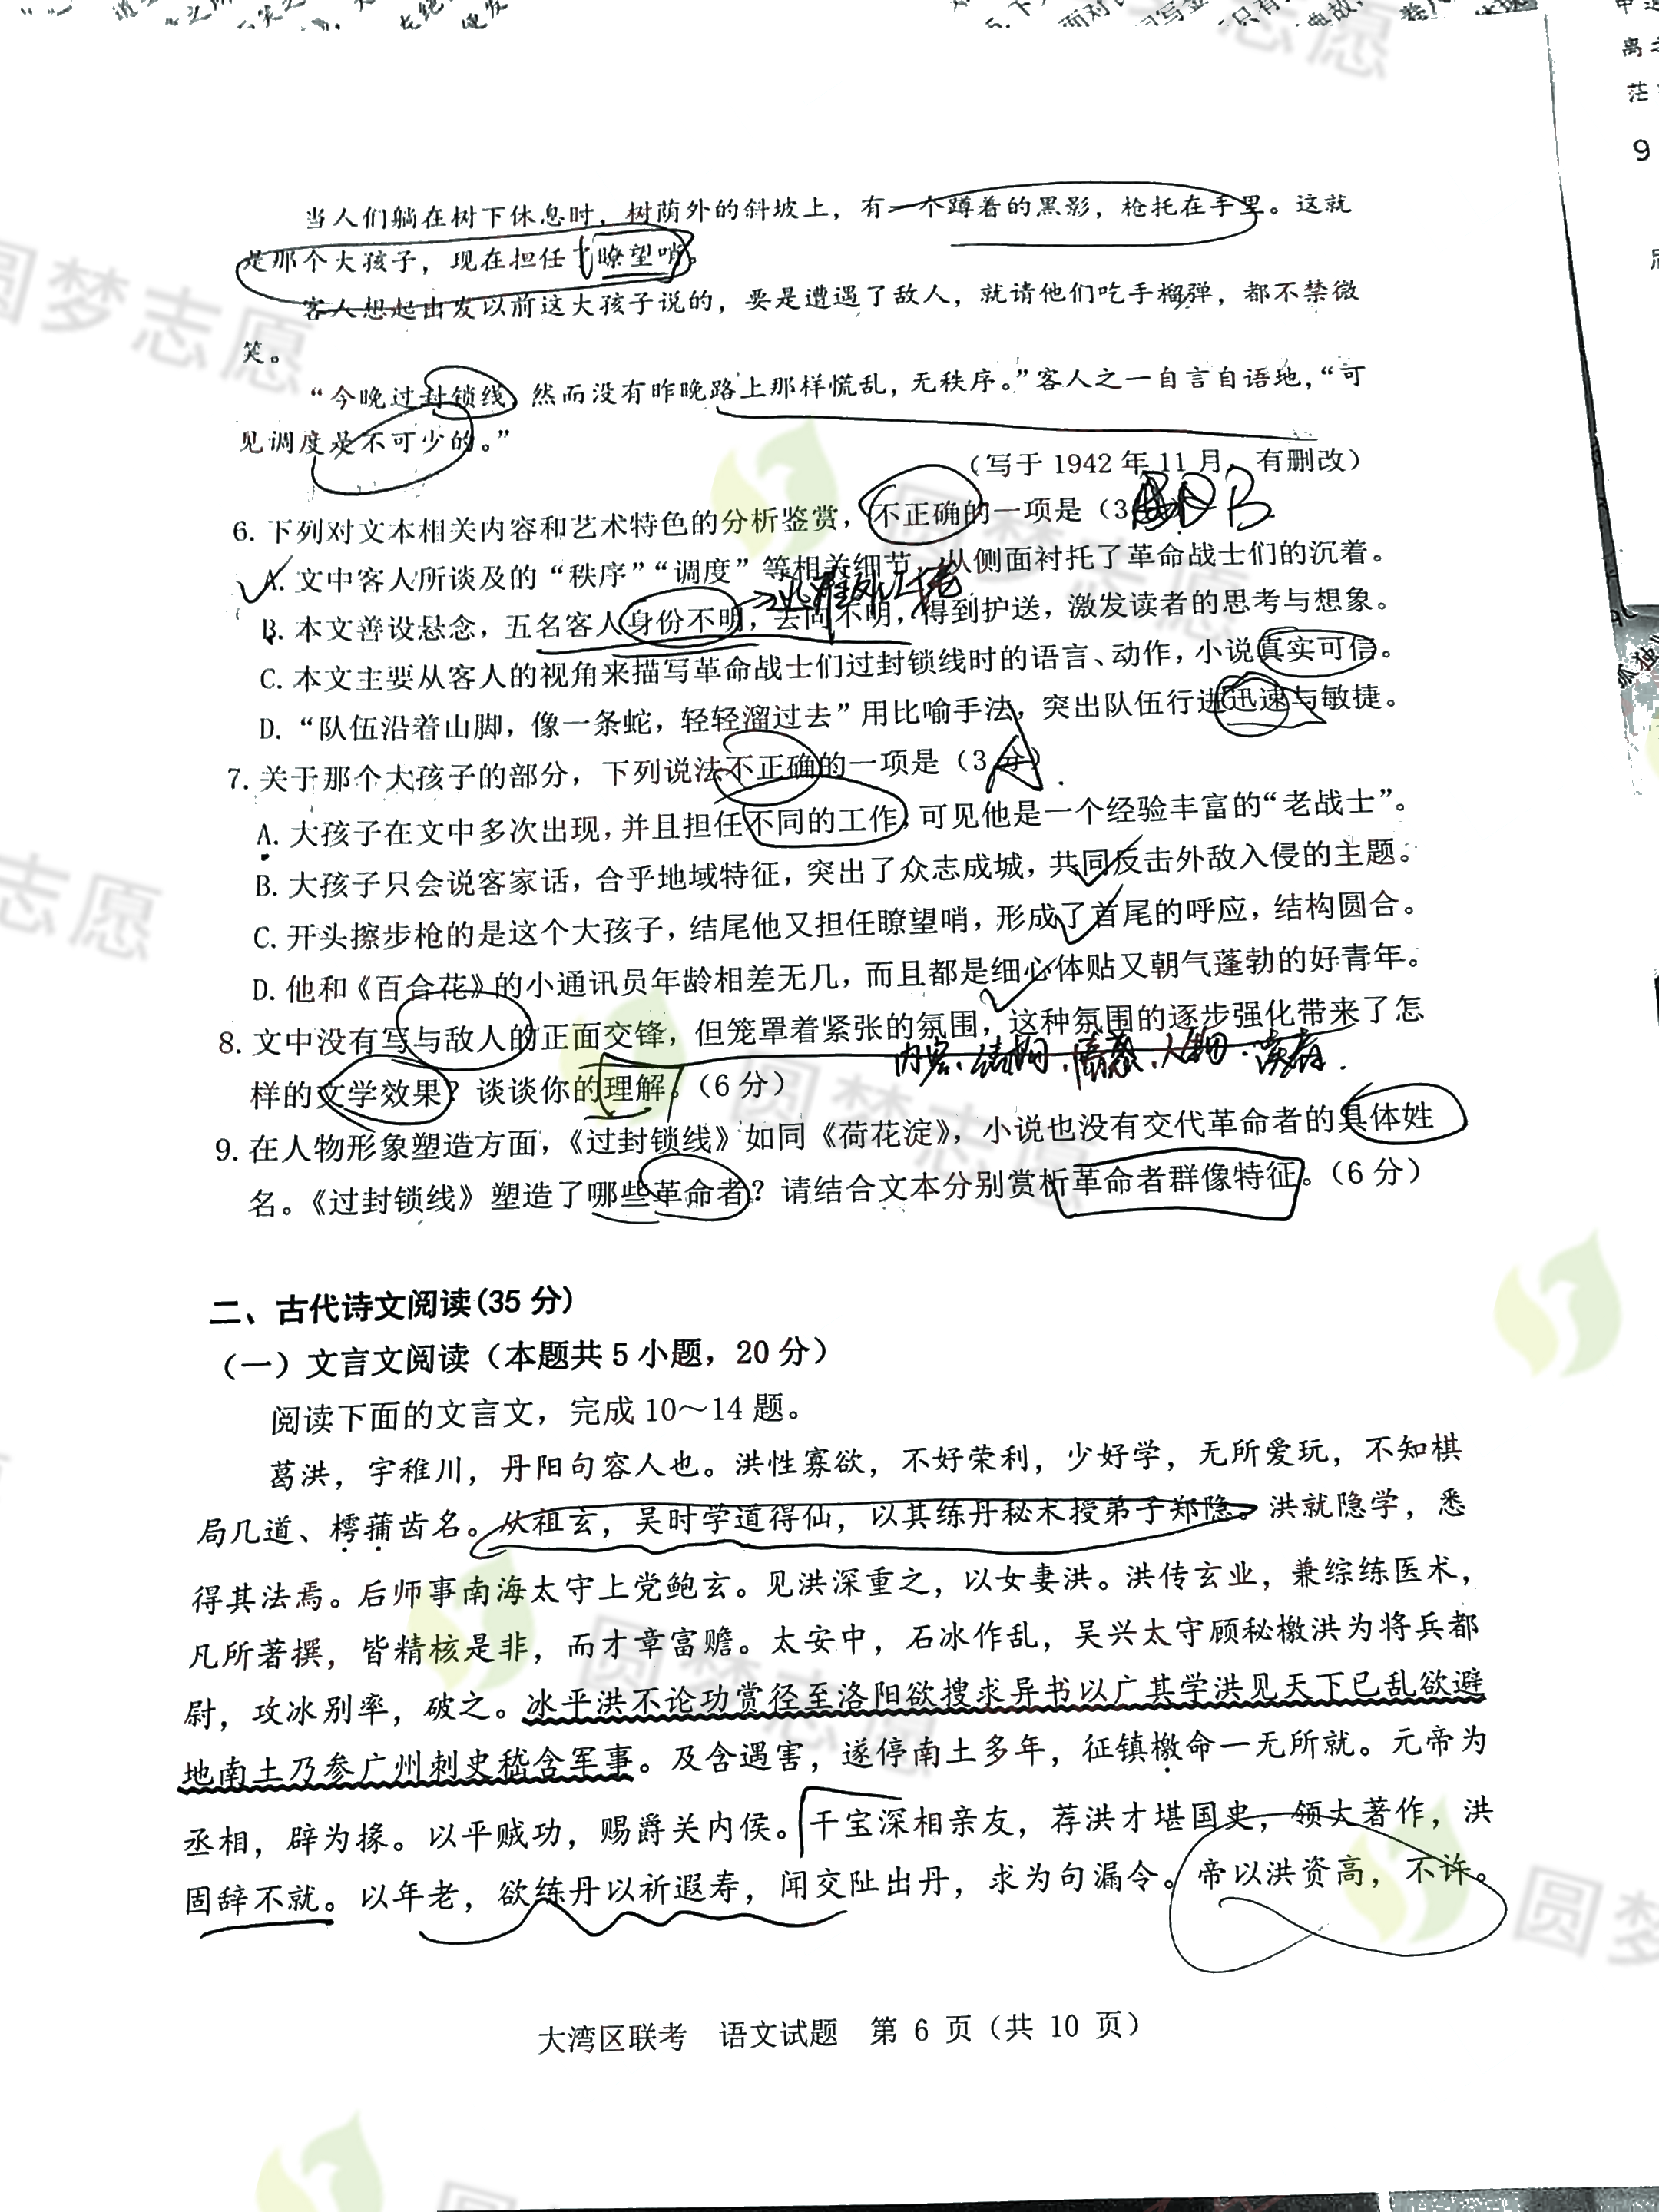 当人们躺在树下休息时，树荫外的斜坡上，有一个蹲着的黑影，枪托在手里。这就
是那个大孩子，现在担任了瞭望哨。
客人想起出发以前这大孩子说的，要是遭遇了敌人，就请他们吃手榴弹，都不禁微
笑。
“今晚过封锁线，然而没有昨晚路上那样慌乱，无秩序。”客人之一自言自语地，“可
见调度是不可少的。”
（写于 1942 年 11 月，有删改）
6. 下列对文本相关内容和艺术特色的分析鉴赏，不正确的一项是（3 B
A. 文中客人所谈及的“秩序”“调度”等相关细节，从侧面衬托了革命战士们的沉着。
B. 本文善设悬念，五名客人身份不明，去向不明，得到护送，激发读者的思考与想象。
C. 本文主要从客人的视角来描写革命战士们过封锁线时的语言、动作，小说真实可信。
D. “队伍沿着山脚，像一条蛇，轻轻溜过去”用比喻手法，突出队伍行进迅速与敏捷。
7. 关于那个大孩子的部分，下列说法不正确的一项是（3 分） A
A. 大孩子在文中多次出现，并且担任不同的工作，可见他是一个经验丰富的“老战士”。
B. 大孩子只会说客家话，合乎地域特征，突出了众志成城，共同反击外敌入侵的主题。
C. 开头擦步枪的是这个大孩子，结尾他又担任瞭望哨，形成了首尾的呼应，结构圆合。
D. 他和《百合花》的小通讯员年龄相差无几，而且都是细心体贴又朝气蓬勃的好青年。
8. 文中没有写与敌人的正面交锋，但笼罩着紧张的氛围，这种氛围的逐步强化带来了怎
内容、结构、情感、人物、读者.
样的文学效果？谈谈你的理解。（6 分）
9. 在人物形象塑造方面，《过封锁线》如同《荷花淀》，小说也没有交代革命者的具体姓
名。《过封锁线》塑造了哪些革命者？请结合文本分别赏析革命者群像特征。（6 分）
二、古代诗文阅读(35 分)
（一）文言文阅读（本题共 5 小题，20 分）
阅读下面的文言文，完成 10～14 题。
葛洪，字稚川，丹阳句容人也。洪性寡欲，不好荣利，少好学，无所爱玩，不知棋
局几道、樗蒱齿名。从祖玄，吴时学道得仙，以其练丹秘术授弟子郑隐。洪就隐学，悉
得其法焉。后师事南海太守上党鲍玄。见洪深重之，以女妻洪。洪传玄业，兼综练医术，
凡所著撰，皆精核是非，而才章富赡。太安中，石冰作乱，吴兴太守顾秘檄洪为将兵都
尉，攻冰别率，破之。冰平洪不论功赏径至洛阳欲搜求异书以广其学洪见天下已乱欲避
地南土乃参广州刺史嵇含军事。及含遇害，遂停南土多年，征镇檄命一无所就。元帝为
丞相，辟为掾。以平贼功，赐爵关内侯。干宝深相亲友，荐洪才堪国史，领大著作，洪
固辞不就。以年老，欲练丹以祈遐寿，闻交阯出丹，求为句漏令。帝以洪资高，不许。
大湾区联考 语文试题 第 6 页（共 10 页）
圆梦志愿